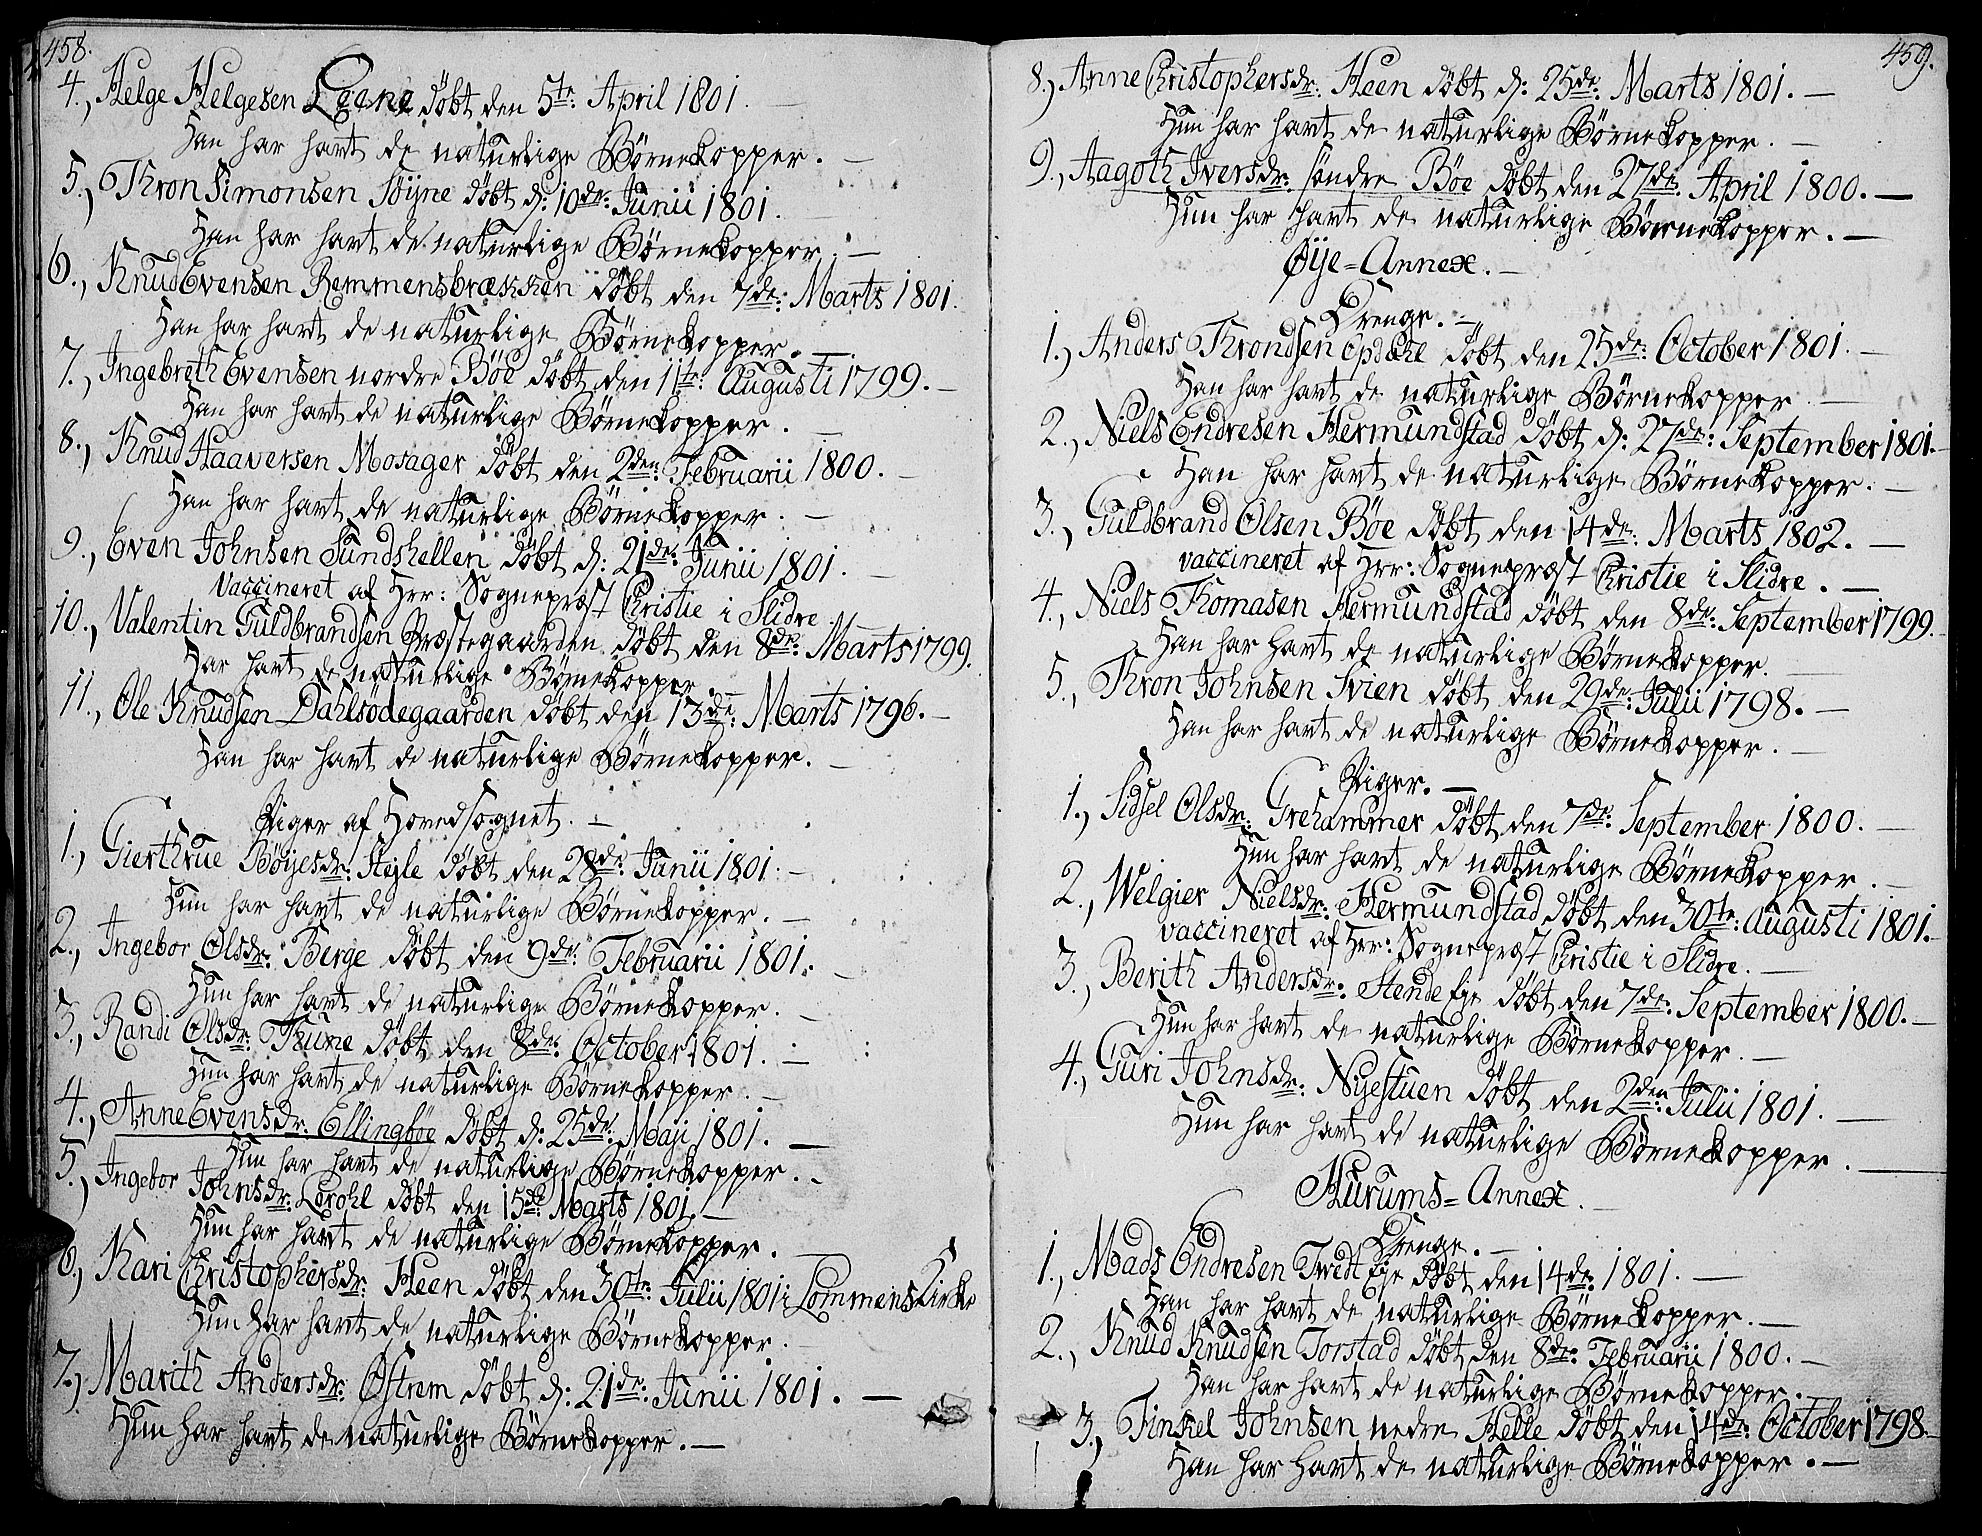 458.
4., Helge Helgesen Leene döbt den 5te: April 1801.
Han har havt de naturlige Börnekopper. —
5., Thron Simonsen Söyne döbt d: 10de: Junii 1801.
Han har havt de naturlige Börnekopper. —
6., Knud Evensen Remmensbrækken döbt den 7de: Marts 1801.
Han har havt de naturlige Börnekopper.
7., Ingebreth Evensen nordre Böe döbt den 11te: Augusti 1799. —
Han har havt de naturlige Börnekopper. —
8., Knud Haaversen Mosager döbt den 2den: Februarii 1800. —
Han har havt de naturlige Börnekopper. —
9., Even Johnsen Sundshellen döbt d: 21de: Junii 1801. —
Vaccineret af Hrr: Sognepræst Christie i Slidre.
10., Valentin Guldbrandsen Præstegaarden döbt den 8de: Marts 1799.
Har havt de naturlige Börnekopper. —
11., Ole Knudsen Dahlsödegaarden döbt den 13de: Marts 1796. —
Han har havt de naturlige Börnekopper. —
Piger af Hovedsognet. —
1., Gierthrue Böyesdr: Hejle döbt den 28de: Junii 1801. —
Hun har havt de naturlige Börnekopper. —
2., Ingebor Olsdr: Berge döbt den 9de: Februarii 1801. —
Hun har havt de naturlige Börnekopper. —
3., Randi Olsdr: Thune döbt den 8de: October 1801. —
Hun har havt de naturlige Börnekopper. —
4., Anne Evensdr: Ellingböe döbt d: 25de: Maji 1801. —
Hun har havt de naturlige Börnekopper. —
5., Ingebor Johnsdr: Lerohl döbt den 15de: Marts 1801. —
Hun har havt de naturlige Börnekopper. —
6., Kari Christophersdr: Heen döbt den 30te: Julii 1801 i Lommens Kirke
Hun har havt de naturlige Börnekopper. —
7., Marith Andersdr: Östrem döbt d: 21de: Junii 1801. —
Hun har havt de naturlige Börnekopper. —
459.
8., Anne Christophersdr: Heen döbt d: 25de: Marts 1801. —
Hun har havt de naturlige Börnekopper. —
9., Aagoth Iversdr: söndre Böe döbt den 27de: April 1800. —
Hun har havt de naturlige Börnekopper. —
Øije=Annex. —
Drenge. —
1., Anders Throndsen Opdahl döbt den 25de: October 1801. —
Han har havt de naturlige Börnekopper. —
2., Niels Endresen Hermundstad döbt d: 27de: September 1801. —
Han har havt de naturlige Börnekopper. —
3., Guldbrand Olsen Böe döbt den 14de: Marts 1802. —
vaccineret af Hrr: Sognepræst Christie i Slidre. —
4., Niels Thomasen Hermundstad döbt den 8de: September 1799.
Han har havt de naturlige Börnekopper. —
5., Thron Johnsen Svien döbt den 29de: Julii 1798. —
Han har havt de naturlige Börnekopper. —
Piger. —
1., Sidsel Olsdr: Grehammer döbt den 7de: September 1800. —
Hun har havt de naturlige Börnekopper. —
2., Welgier Nielsdr: Hermundstad döbt den 30te: Augusti 1801. —
vaccineret af Hrr: Sognepræst Christie i Slidre. —
3., Berith Andersdr: Stende Eje döbt den 7de: September 1800. —
Hun har havt de naturlige Börnekopper. —
4., Guri Johnsdr: Nyestuen döbt den 2den: Julii 1801. —
Hun har havt de naturlige Börnekopper. —
Hurums=Annex. —
Drenge. —
1., Mads Endresen Twedt Eje döbt den 14de: 1801. —
Han har havt de naturlige Börnekopper. —
2., Knud Knudsen Torstad döbt den 8de: Februarii 1800. —
Han har havt de naturlige Börnekopper. —
3., Finkel Johnsen nedre Helle döbt den 14de: October 1798. —
Han har havt de naturlige Börnekopper. —